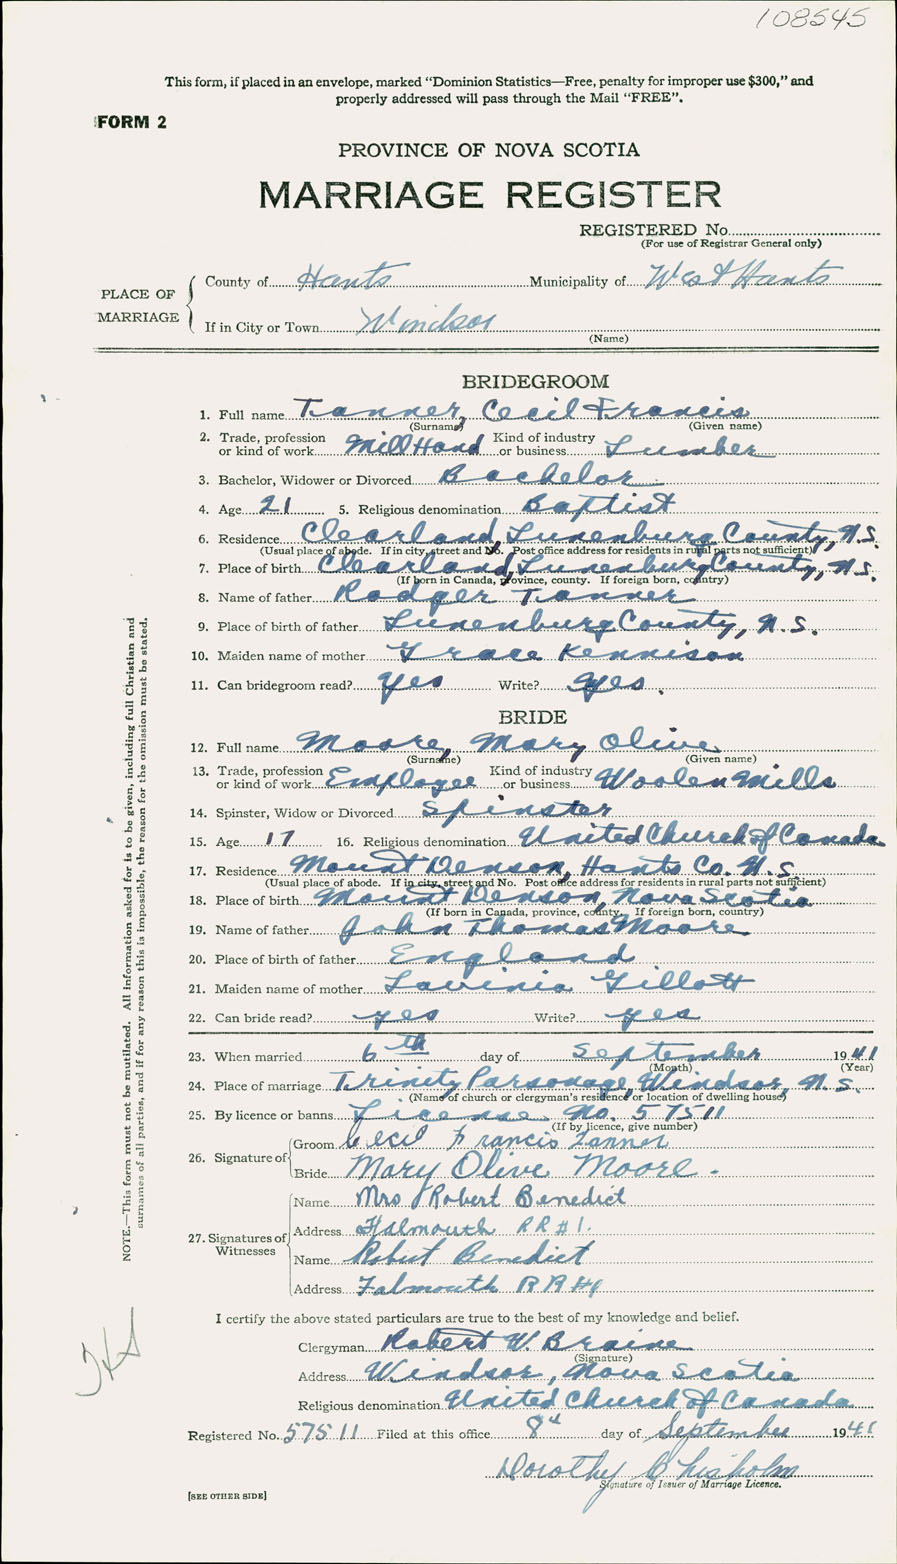 108545
This form, if placed in an envelope, marked “Dominion Statistics—Free, penalty for improper use $300,” and
properly addressed will pass through the Mail “FREE”.
FORM 2
PROVINCE OF NOVA SCOTIA
MARRIAGE REGISTER
REGISTERED No.
(For use of Registrar General only)
PLACE OF MARRIAGE
County of Hants Municipality of West Hants
If in City or Town Windsor
(Name)
BRIDEGROOM
1. Full name Tanner, Cecil Francis
(Surname) (Given name)
2. Trade, profession or kind of work Mill Hand Kind of industry or business Lumber
3. Bachelor, Widower or Divorced Bachelor
4. Age 21 5. Religious denomination Baptist
6. Residence Clearland, Lunenburg County, N.S.
(Usual place of abode. If in city, street and No. Post office address for residents in rural parts not sufficient)
7. Place of birth Clearland, Lunenburg County, N.S.
(If born in Canada, province, county. If foreign born, country)
8. Name of father Rodger Tanner
9. Place of birth of father Lunenburg County, N.S.
10. Maiden name of mother Grace Kennison
11. Can bridegroom read? Yes Write? yes.
BRIDE
12. Full name Moore, Mary Olive
(Surname) (Given name)
13. Trade, profession or kind of work Employee Kind of industry or business Woolen Mills
14. Spinster, Widow or Divorced Spinster
15. Age 17 16. Religious denomination United Church of Canada
17. Residence Mount Denson, Hants Co. N.S.
(Usual place of abode. If in city, street and No. Post office address for residents in rural parts not sufficient)
18. Place of birth Mount Denson, Nova Scotia
(If born in Canada, province, county. If foreign born, country)
19. Name of father John Thomas Moore
20. Place of birth of father England
21. Maiden name of mother Lavinia Gillott
22. Can bride read? yes Write? yes
23. When married 6th day of September 1941
(Month) (Year)
24. Place of marriage Trinity Parsonage, Windsor, N.S.
(Name of church or clergyman's residence or location of dwelling house)
25. By licence or banns License No. 57511
(If by licence, give number)
26. Signature of
Groom Cecil Francis Tanner
Bride Mary Olive Moore.
27. Signatures of Witnesses
Name Mrs Robert Benedict
Address Falmouth RR #1.
Name Robert Benedict
Address Falmouth RR #1
I certify the above stated particulars are true to the best of my knowledge and belief.
Clergyman Robert W. Braine
(Signature)
Address Windsor, Nova Scotia
Religious denomination United Church of Canada
Registered No. 57511 Filed at this office 8th day of September 1941
Dorothy Chisholm
Signature of Issuer of Marriage Licence.
[SEE OTHER SIDE]
NOTE.—This form must not be mutilated. All information asked for is to be given, including full Christian and
surnames of all parties, and if for any reason this is impossible, the reason for the omission must be stated.